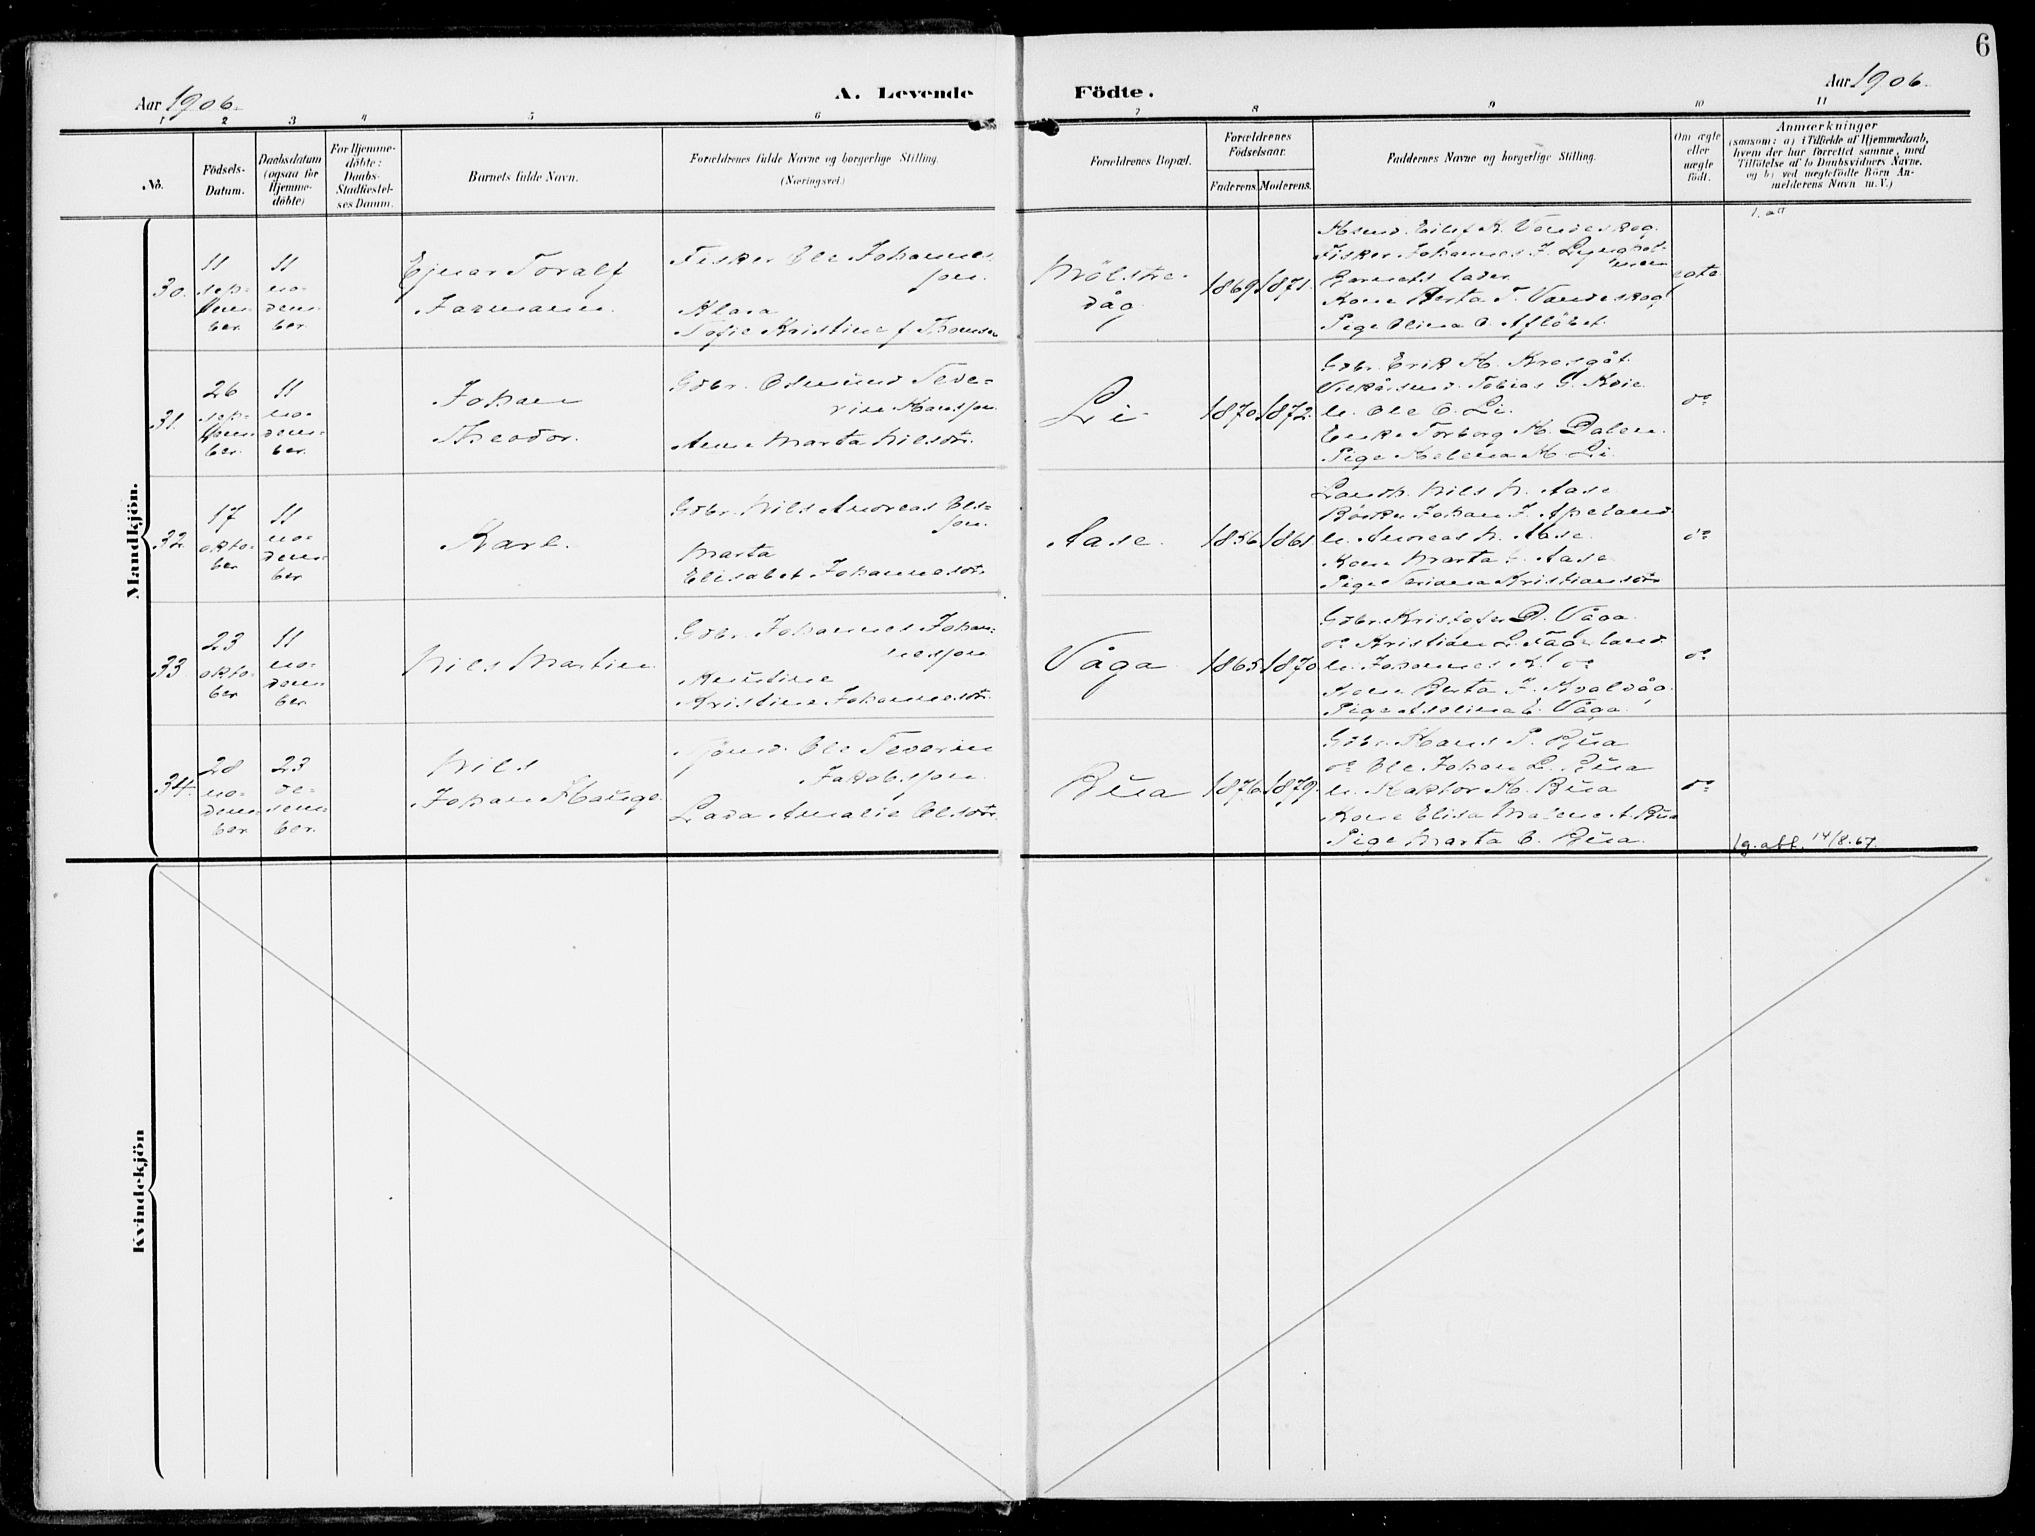 6
Aar 1906.
A. Levende
Födte.
Aar 1906.
1 2 3 4 5 6 7 8 9 10 11
No.
Födsels-
Datum.
Daabsdatum
(ogsaa for
Hjemme-
döbte)
For Hjemme-
döbte:
Daabs-
Stadfæstel-
ses Datum.
Barnets fulde Navn.
Forældrenes fulde Navne og borgerlige Stilling.
(Næringsvei.)
Forældrenes Bopæl.
Forældrenes
Födselsaar.
Faderens. Moderens.
Faddernes Navne og borgerlige Stilling.
Om ægte
eller
uægte
födt.
Anmærkninger
(saasom: a) i Tilfælde af Hjemmedaab,
hvem der har forrettet samme, med
Tilföielse af to Daabsvidners Navne.
og b) ved uægtefödte Börn An-
melderens Navn m. V.)
Mandkjön.
30.
11
sep-
tem-
ber
11
no-
vem-
ber.
Ejnar Toralf
Farmann.
Fisker Ole Johannes-
sen.
Klara
Sofie Kristine f. Thomsen
Mölstre-
våg
1869
1871
Eilef K. Vandeskog
Fisker Johannes J. Lynghol-
men
Barnets fader
Kone Berta T. Vandeskog
Pige Olina O. Aflöbet.
egte
31.
26
sep-
tem-
ber.
11
no-
vem-
ber.
Johan
Theodor.
Gdbr. Osmund Seve-
rin Hansen.
Anna Marta Nilsdtr.
Li
1870
1872.
Gdbr. Erik M.
Tobias G.
u. Ole O. Li.
Enke Torborg M. Dalen.
Pige Helena M. Li.
do
32.
17
okto-
ber
11
no-
vem-
ber
Karl.
Gdbr. Nils Andreas Ols-
sen.
Marta
Elisabet Johannesdtr.
Aase.
1856
1861
Landh. Nils N. Aase
Johan J. Apeland.
u. Andreas N. Aase.
Kone Marta Aase
Pige Seriana Kristiansdtr
do
33.
23
okto-
ber
11
no-
vem-
ber.
Nils Martin.
Gdbr. Johannes Johan-
nessen
Knutine
Kristine Johannesdtr.
Våga
1865
1870
Gdbr. Kristofer D. Våga.
do Kristian L.
u. Johannes K. do
Kone Berta J. Kvalvåg.
Pige Aslina E. Våga.
do
34.
28
no-
vem-
ber
23
de-
sem-
ber.
Nils
Johan Hauge.
Ole Severin
Jakobssen.
Lava Amalie Olsdtr.
Bua
1876
1879.
Gdbr. Hans P. Bua
do Ole Johan L. Bua
u. Kaptor K. Bua
Kone Elisa Malene A. Bua
Pige Marta O. Bua.
do
1 g. att. 14/8.67.
Kvindekjön